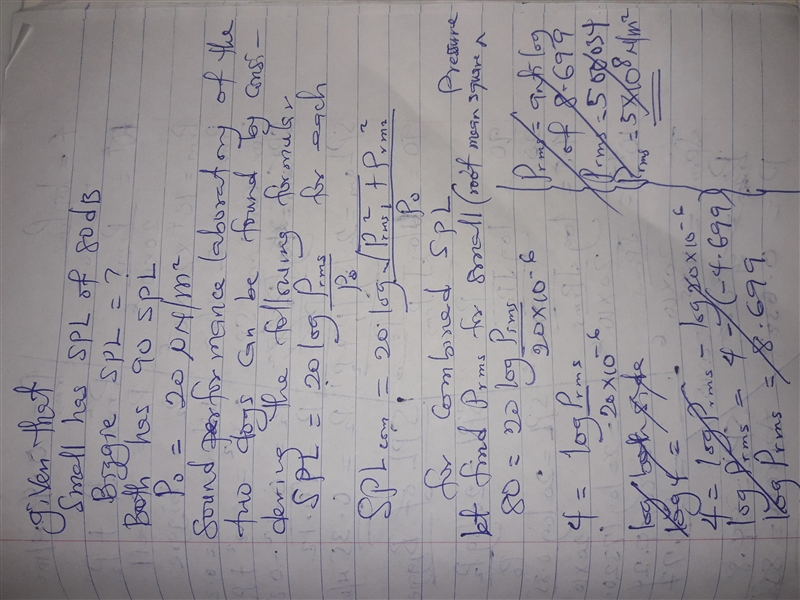 given that
Small has SPL of 80dB
Biggie SPL = ?
Both has 90 SPL
P₀ = 20 μN/m²
Sound performance laboratory of the
two dogs can be found by consi-
dering the following formular
SPL = 20 log Prms/P₀ for each
SPLcom = 20 log √(P²rms₁ + Prms₂²)/P₀
for combined SPL
let find Prms for small (root mean square Pressure
80 = 20 log Prms/20×10-6
4 = log Prms/20×10-6
log both side
log 4 =
4 = log Prms - log 20×10-6
log Prms = 4 - (-4.699)
log Prms = 8.699
Prms = anti log
of 8.699
Prms = 500034
Prms = 5×10⁸ N/m²